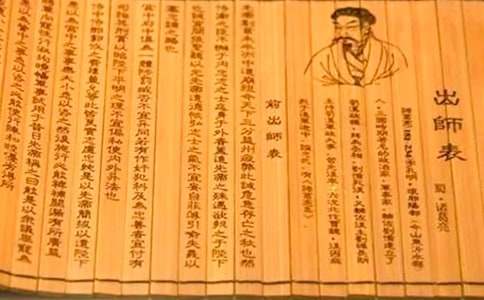 出師表 蜀·諸葛亮
人。三國時期著名的政治家、軍事家。輔佐劉備建立了
前出師表
先帝創業未半而中道崩殂今天下三分益州疲弊此誠危急存亡之秋也然
侍衛之臣不懈於內忠志之士忘身於外者蓋追先帝之殊遇欲報之於陛下
也誠宜開張聖聽以光先帝遺德恢弘志士之氣不宜妄自菲薄引喻失義以
塞忠諫之路也
宮中府中俱為一體陟罰臧否不宜異同若有作奸犯科及為忠善者宜付有
司論其刑賞以昭陛下平明之理不宜偏私使內外異法也
侍中侍郎郭攸之費禕董允等此皆良實志慮忠純是以先帝簡拔以遺陛下
愚以為宮中之事事無大小悉以咨之然後施行必能裨補闕漏有所廣益
將軍向寵性行淑均曉暢軍事試用於昔日先帝稱之曰能是以眾議舉寵為
愚以為營中之事悉以咨之必能使行陣和睦優劣得所